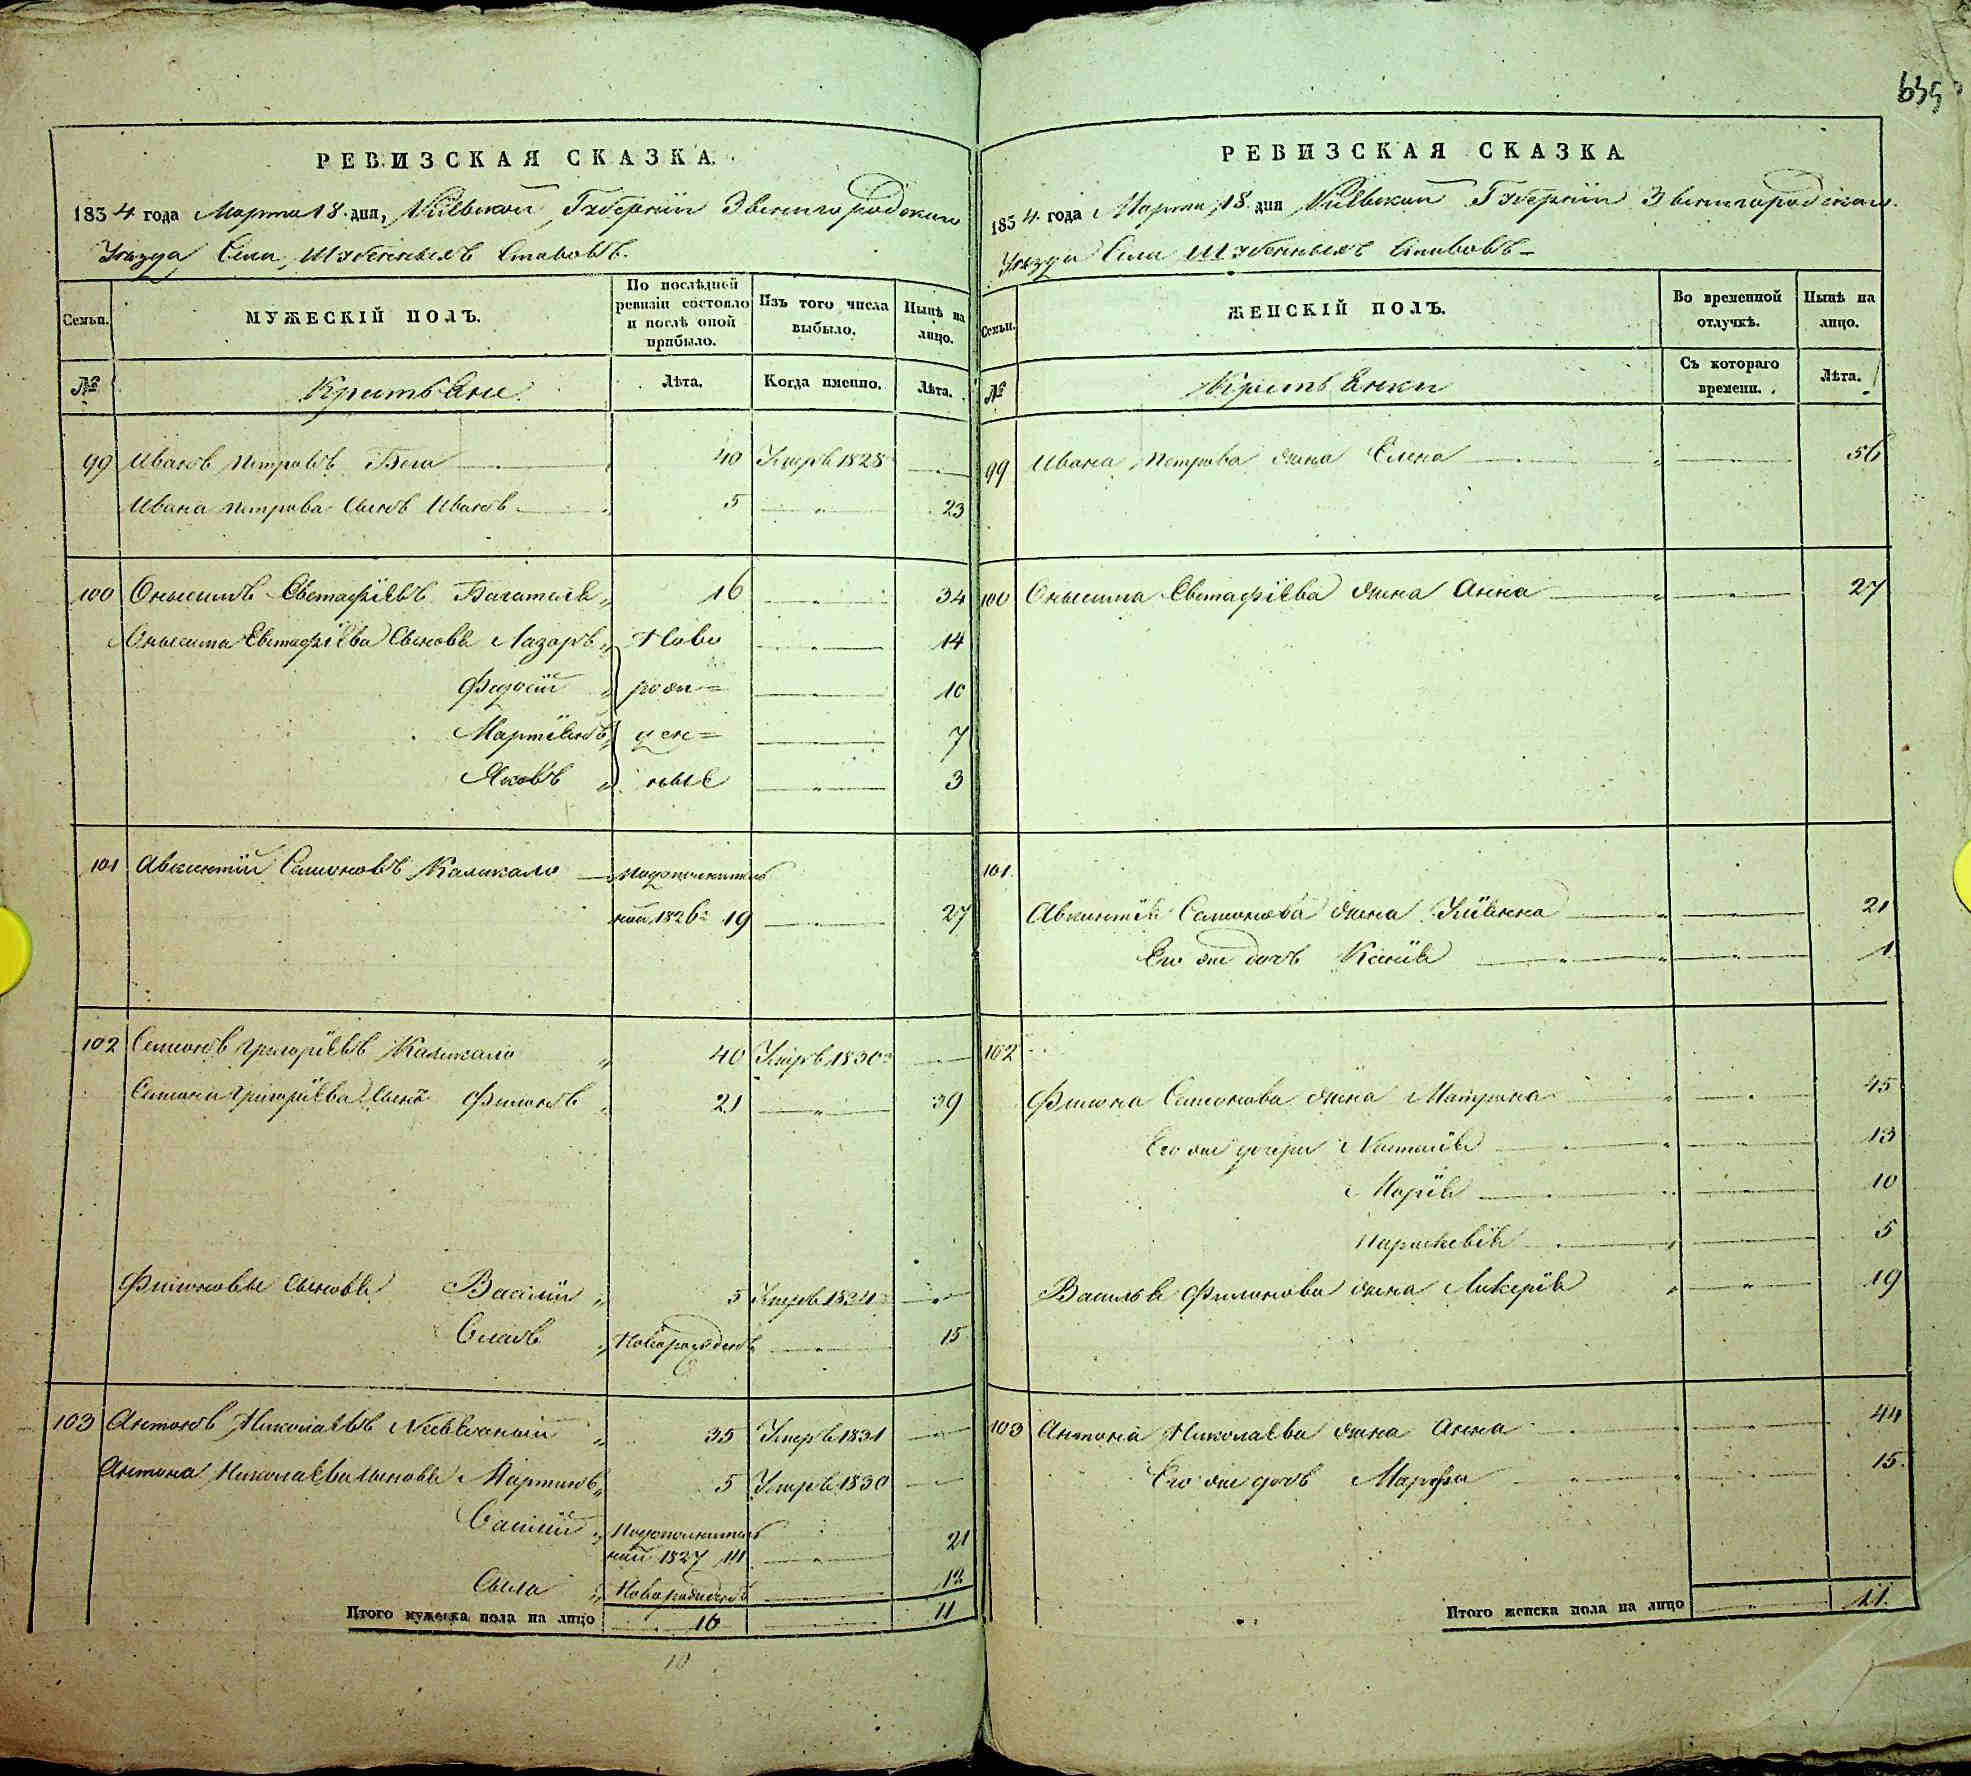 635
РЕВИЗСКАЯ СКАЗКА.
1834 года Марта 18 дня, Кіевской Губерніи Звенигородскаго
Уѣзда, Села Шубенныхъ Ставовъ.
Семьи. МУЖЕСКІЙ ПОЛЪ. По послѣдней ревизіи состояло и послѣ оной прибыло. Изъ того числа выбыло. Нынѣ на лицо.
№ Крестьяне Лѣта. Когда именно. Лѣта.
99 Иванъ Петровъ Бега 40 Умеръ 1828
Ивана Петрова сынъ Иванъ 5 23
100 Онысимъ Евстафіевъ 16 34
Онысима Евстафіева сыновья Лазарь Ново 14
Федосій рож= 10
Мартинъ ден= 7
Яковъ ные 3
101 Авксентій Семоновъ Каликало Подополнитель
ной 1826 19 27
102 Семонъ Григоріевъ Каликало 40 Умеръ 1830
Семона Григоріева сынъ Филонъ 21 39
Филоновы сыновья Василій 5 Умеръ 1834
Новорожденъ 15
103 Антонъ Николаевъ 35 Умеръ 1831
Антона Николаева сыновья Мартинъ 5 Умеръ 1830
Василій Подополнитель
ной 1827 14 21
Сыла Новорожденъ 12
Итого мужеска пола на лицо 10 11
10
РЕВИЗСКАЯ СКАЗКА
1834 года Марта 18 дня Кіевской Губерніи Звенигородскаго
Уѣзда Села Шубенныхъ Ставовъ
Семьи. ЖЕНСКІЙ ПОЛЪ. Во временной отлучкѣ. Нынѣ на лицо.
№ Крестьянки Съ котораго времени. Лѣта.
99 Ивана Петрова жена Елена 56
100 Онысима Евстафіева жена Анна 27
101.
Авксентія Семонова жена Уліянна 21
Его же дочь Ксенія 1
102
Филона Семонова жена Матрона 45
Его же дочери Настасія 13
Марія 10
Параскевія 5
Василья Филонова жена Ликерія 19
103 Антона Николаева жена Анна 44
Его же дочь Марфа 15.
Итого женска пола на лицо 11.